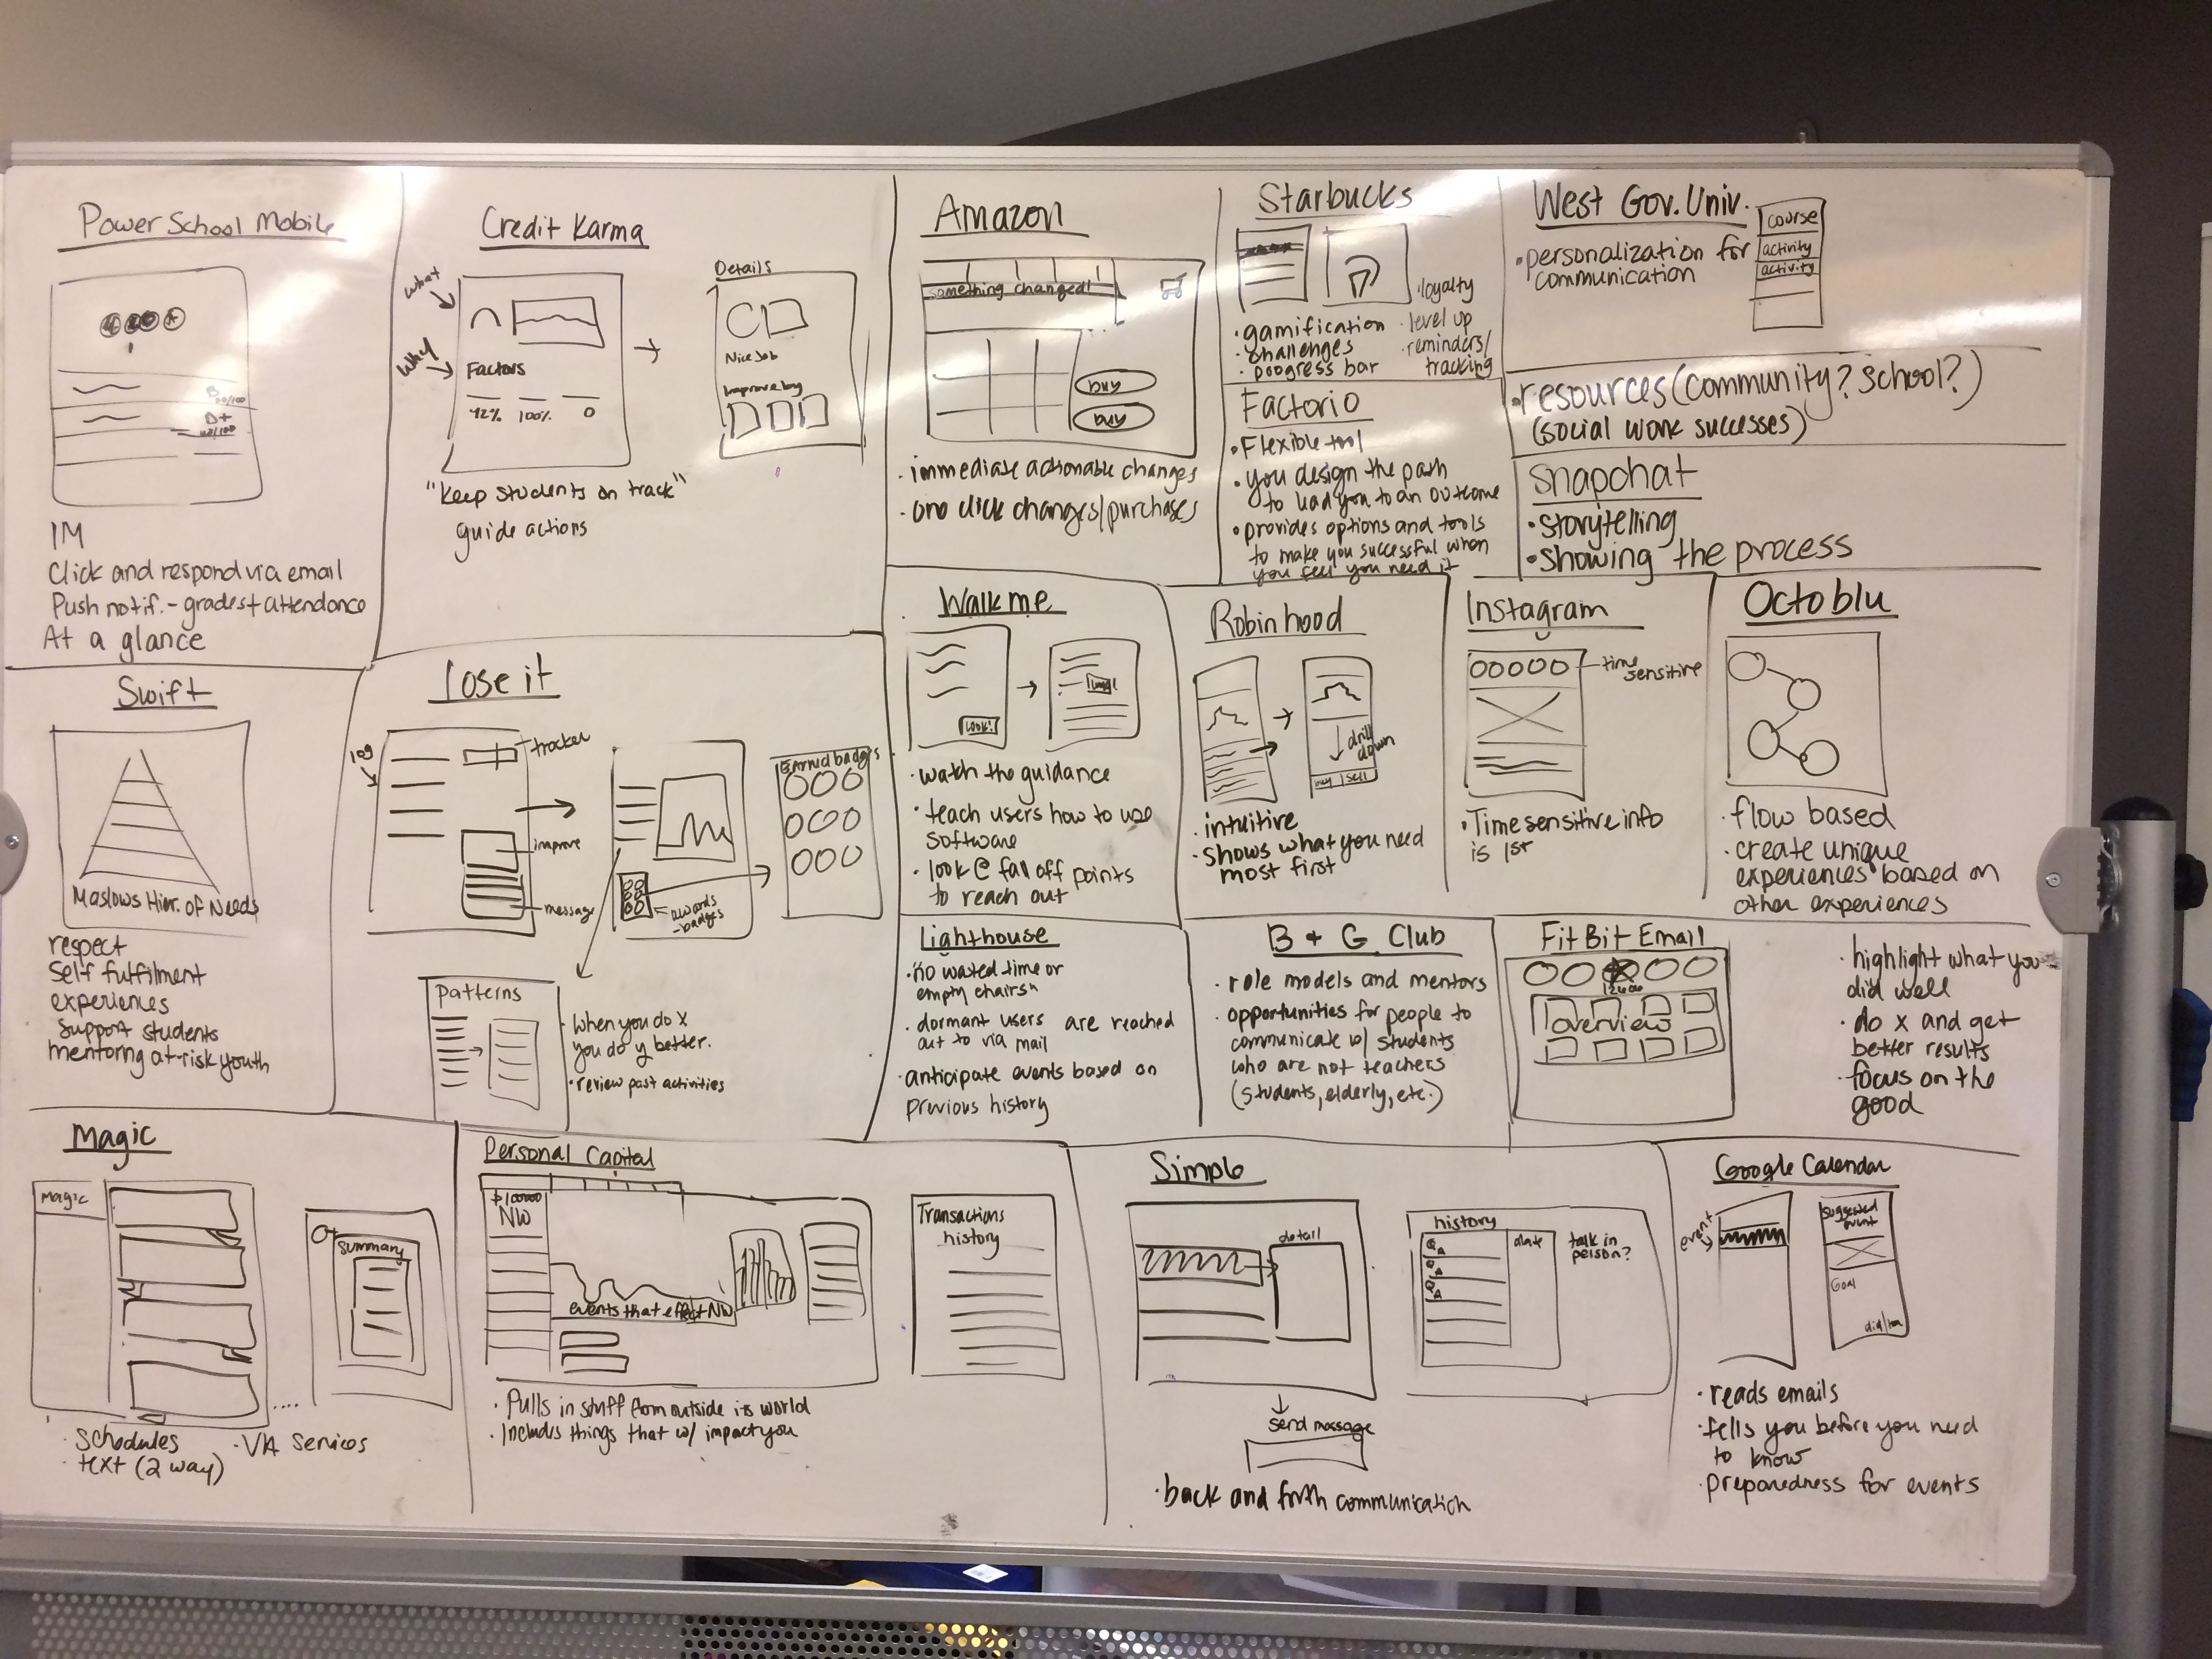 Power School Mobile
B
90/100
D+
IM
Click and respond via email
Push notif. - grades + attendance
At a glance
Credit Karma
what
why
Factors
42% 100% 0
Details
Nice Job
Improve by
"keep students on track"
guide actions
Amazon
something changed!
buy
buy
· immediate actionable changes
· one click changes/purchases
Starbucks
· gamification
· challenges
· progress bar
· loyalty
· level up
· reminders/
tracking
Factorio
· Flexible tool
· you design the path
to lead you to an outcome
· provides options and tools
to make you successful when
you feel you need it
West Gov. Univ.
· personalization for
communication
course
activity
activity
· resources (community? school?)
(social work successes)
Snapchat
· storytelling
· showing the process
Swift
Maslows Hier. of Needs
respect
self fulfilment
experiences
support students
mentoring at-risk youth
Lose it
log
tracker
improve
message
awards
-badges
Earned badges
Patterns
· When you do x
you do y better.
· review past activities
Walk me
Look!
· watch the guidance
· teach users how to use
software
· look @ fall off points
to reach out
Robinhood
drill
down
buy | sell
· intuitive
· shows what you need
most first
Instagram
time
sensitive
· Time sensitive info
is 1st
Octoblu
· flow based
· create unique
experiences based on
other experiences
Lighthouse
· "no wasted time or
empty chairs"
· dormant users are reached
out to via mail
· anticipate events based on
previous history
B + G Club
· role models and mentors
· opportunities for people to
communicate w/ students
who are not teachers
(students, elderly, etc.)
FitBit Email
overview
· highlight what you
did well
· do x and get
better results
· focus on the
good
Magic
magic
summary
....
· schedules
· text (2 way)
· VA Services
Personal Capital
$100000
NW
events that effect NW
Transactions
history
· Pulls in stuff from outside its world
· Includes things that w/ impact you
Simple
detail
send message
history
date
Q
A
Q
A
Q
A
talk in
person?
· back and forth communication
Google Calendar
event
suggested
event
Goal
· reads emails
· tells you before you need
to know
· preparedness for events